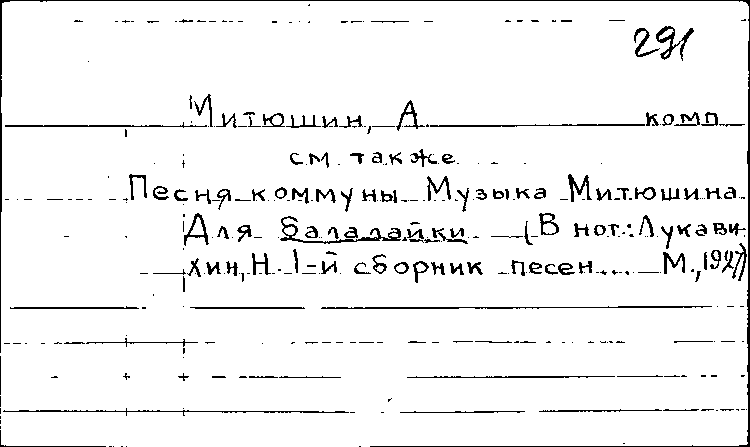 291
Митюшин, А комп
см. также
Песня коммуны Музыка Митюшина
Для балалайки (В нот.: Лукави
хин, Н. 1-й сборник песен... М., 1927)